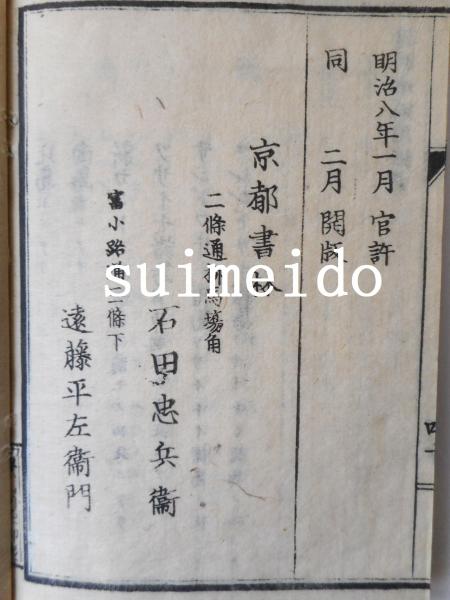 明治八年一月 官許
同 二月 開版
京都書林
二條通柳馬場角
石田忠兵衞
富小路通二條下
遠藤平左衞門
suimeido